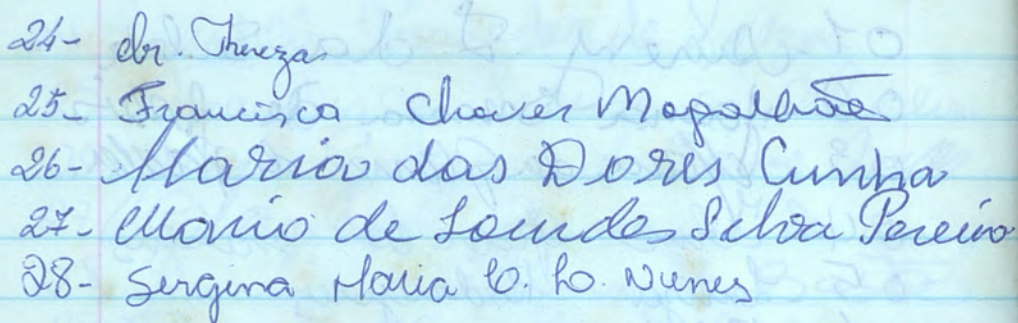 24- dr. Thereza
25- Francisca Chaves Magalhães
26- Maria das Dores Cunha
27- Maria de Lourdes Silva Pereira
28- Sergina Maria C. L. Nunes